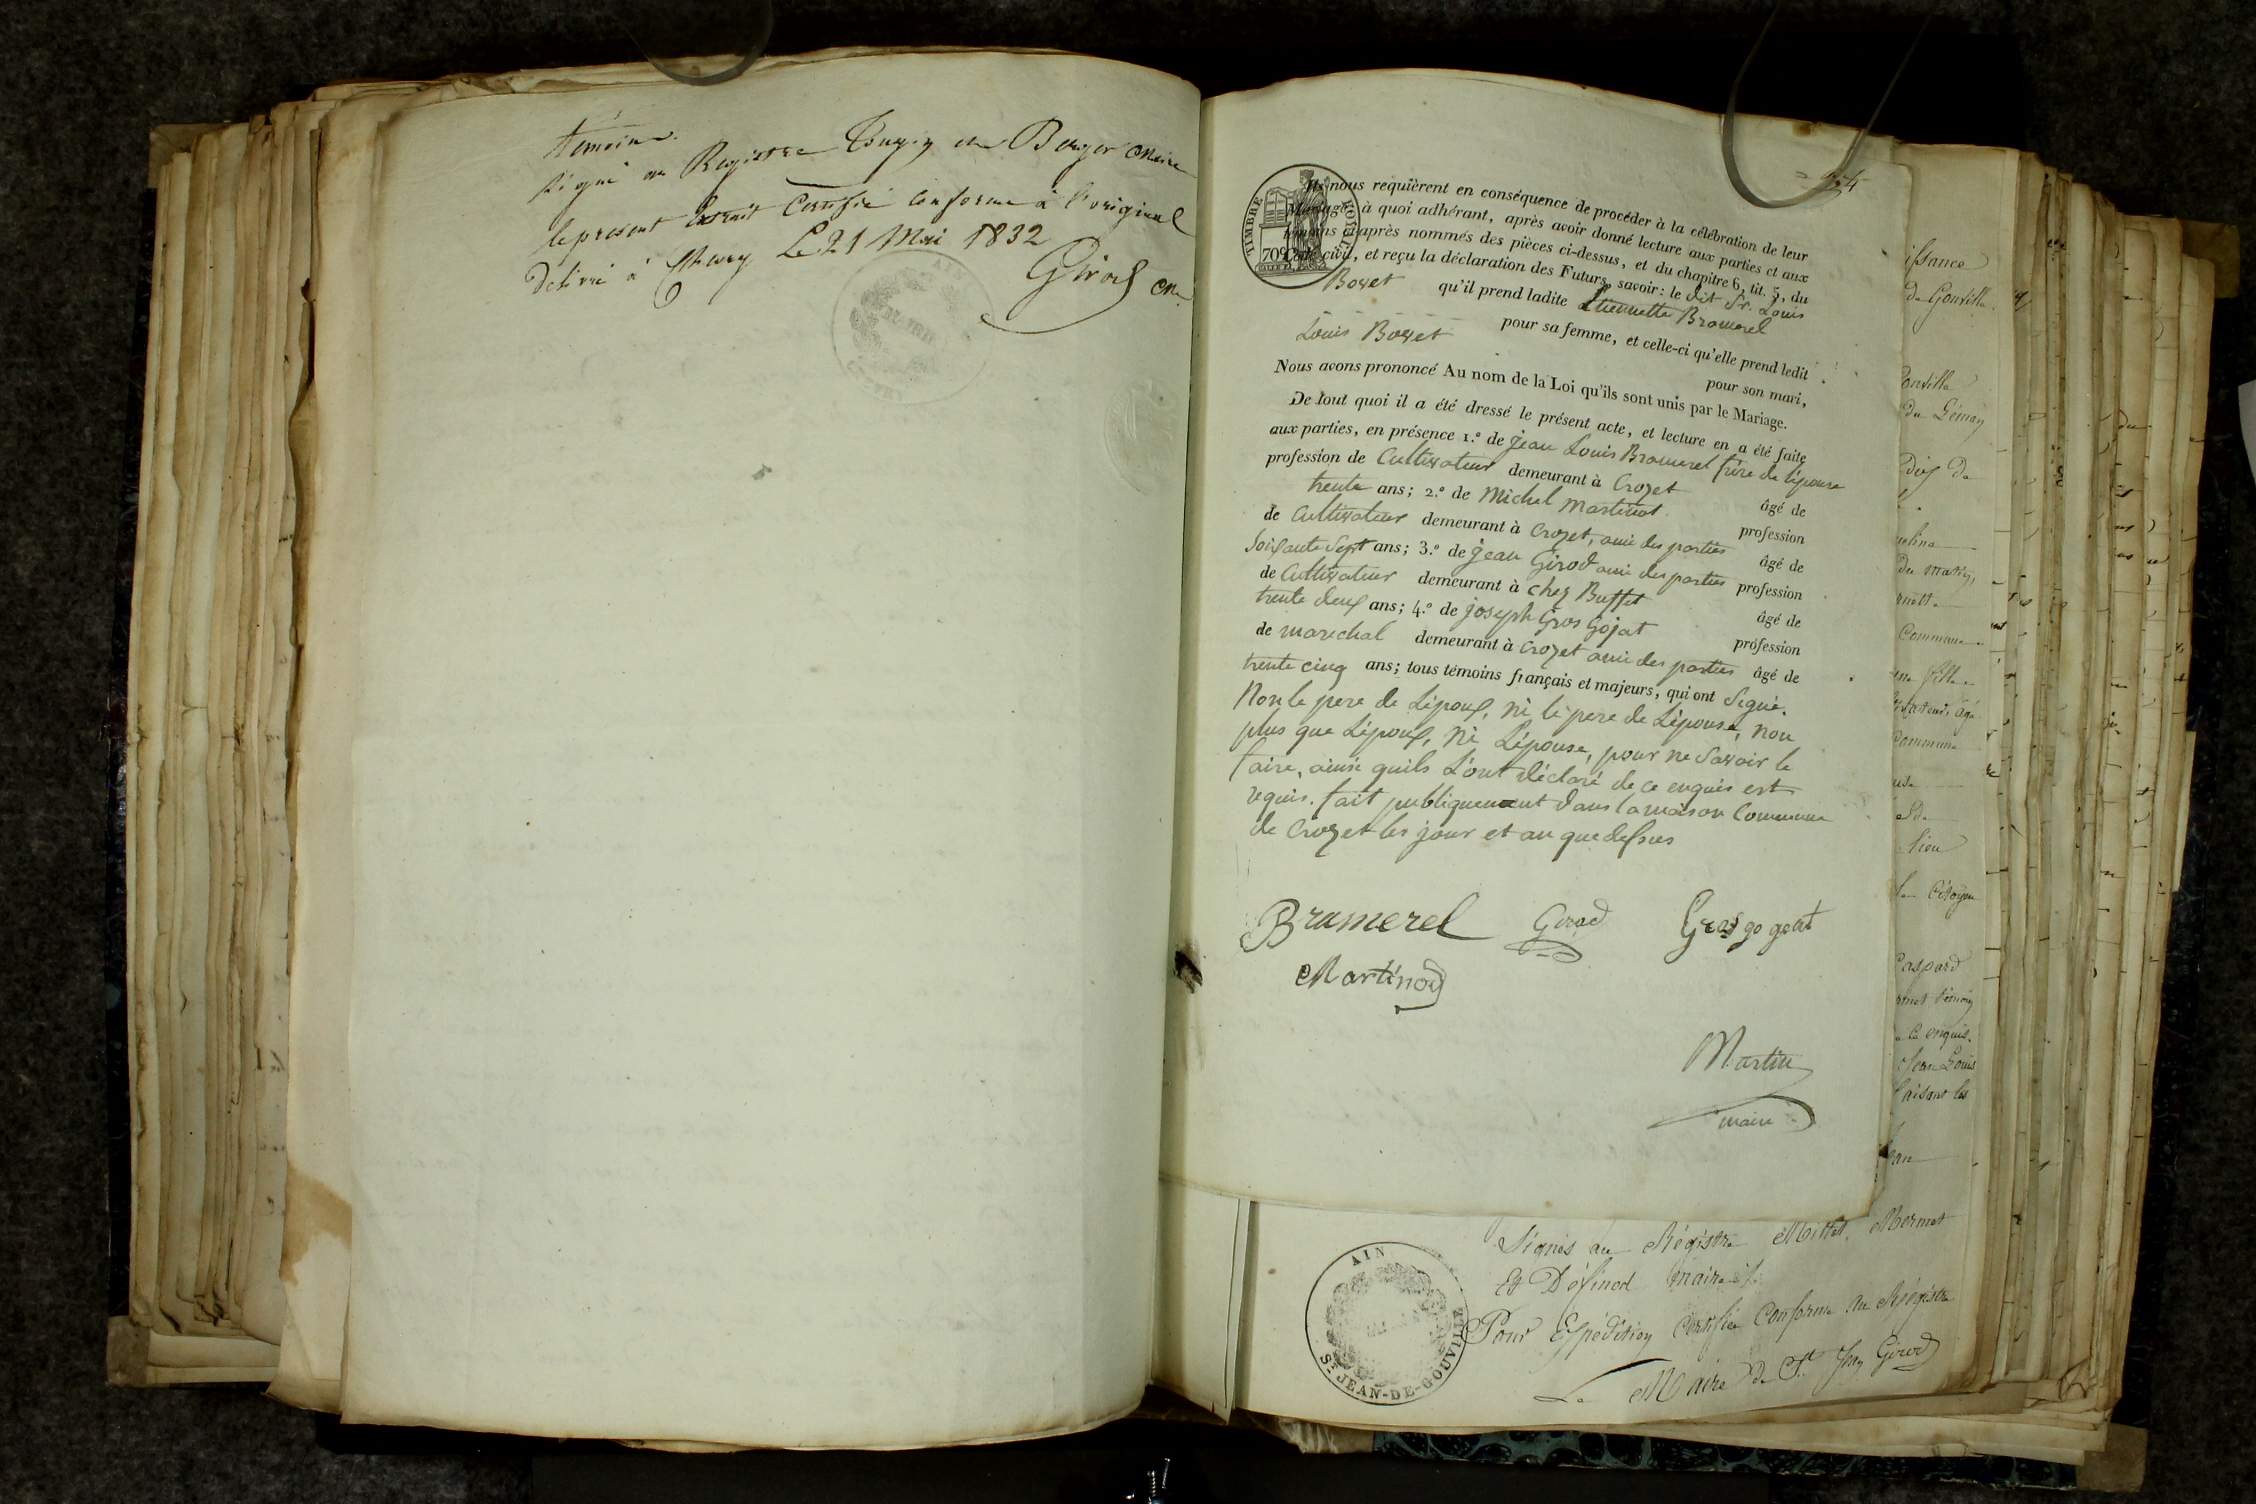 témoins.
signé au Registre Tougin et Berger Maire
le present Extrait Certifié Conforme à l'original
Delivré à Chevry Le 21 Mai 1832
Girod
AIN
MAIRIE
TIMBRE ROYAL
70c
Ils nous requièrent en conséquence de procéder à la célébration de leur
Mariage; à quoi adhérant, après avoir donné lecture aux parties et aux
témoins ci-après nommés des pièces ci-dessus, et du chapitre 6, tit. 5, du
Code civil, et reçu la déclaration des Futurs, savoir: le dit Sr. Louis
Bozet qu'il prend ladite Etiennette Bramerel
pour sa femme, et celle-ci qu'elle prend ledit
Louis Bozet pour son mari,
Nous avons prononcé Au nom de la Loi qu'ils sont unis par le Mariage.
De tout quoi il a été dressé le présent acte, et lecture en a été faite
aux parties, en présence 1.º de jean Louis Bramerel frère de lépouse
profession de Cultivateur demeurant à Crozet âgé de
trente ans; 2.º de Michel Martinod profession
de Cultivateur demeurant à Crozet, ami des parties âgé de
Soixante Sept ans; 3.º de jean Girod ami des parties profession
de Cultivateur demeurant à chez Buffet âgé de
trente deux ans; 4.º de joseph Gros Gojat profession
de marechal demeurant à Crozet ami des parties âgé de
trente cinq ans; tous témoins français et majeurs, qui ont Signé.
Non le pere de Lépoux, ni le pere de Lépouse, non
plus que Lépoux, ni Lépouse, pour ne Savoir le
faire, ainsi quils L'ont déclaré de ce enquis est
requis. fait publiquement dans la maison Commune
de Crozet les jour et an que dessus
Bramerel Girod Grosgogeat
Martinod
Martin
maire
Signés au Régistre Mittet, Mermet
Et Défined maire
Pour Expédition Certifiée Conforme au Régistre
Le Maire de St Jean Girod
AIN
ST JEAN-DE-GOUVILLE
issance
de Gouville
Gouville
de Gémoy
dix de
Commune
une fille
Cultivateur, âgé
Commune
lieu
le Citoyen
Gaspard
ce enquis.
Jean Louis
faisant les